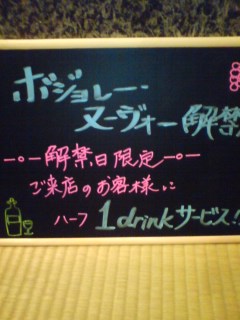 ボジョレー・
ヌーヴォー解禁
解禁日限定
ご来店のお客様に
ハーフ 1drinkサービス!!